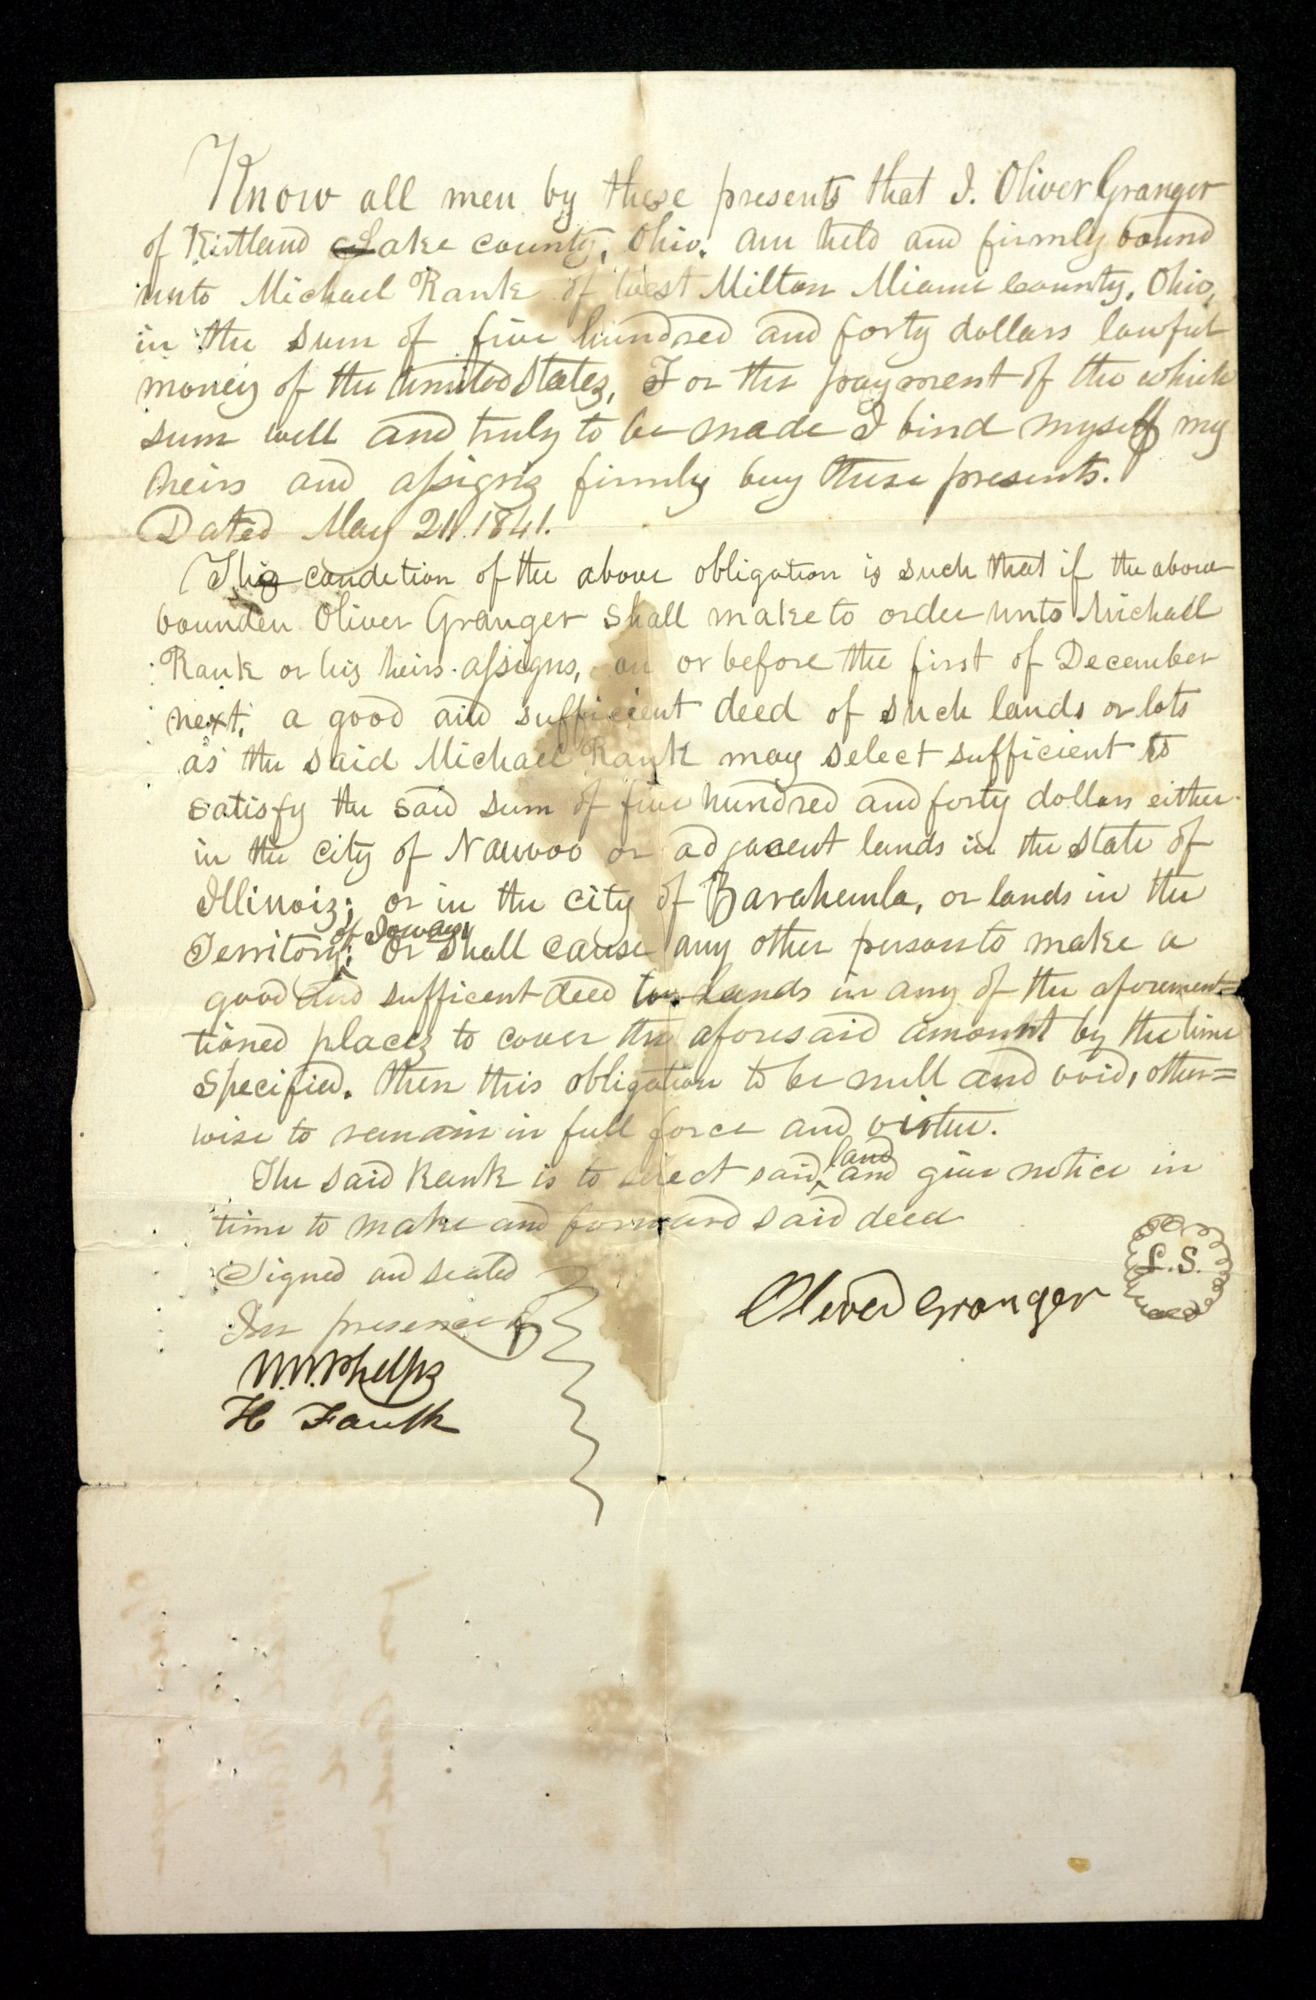 Know all men by these presents that I. Oliver Granger
of Kirtland Lake county, Ohio. am held and firmly bound
unto Michael Rank of West Milton Miami County, Ohio,
in the sum of five hundred and forty dollars lawful
money of the United States, For the payment of the which
sum well and truly to be made I bind myself my
heirs and assigns firmly buy these presents.
Dated May 21. 1841.
The condetion of the above obligation is such that if the above
bounden Oliver Granger shall make to order unto Michael
Rank or his heirs assigns, on or before the first of December
next, a good and sufficient deed of such lands or lots
as the said Michael Rank may select sufficient to
satisfy the said sum of five hundred and forty dollars either
in the city of Nauvoo or adjacent lands in the state of
Illinois; or in the city of Zarahemla, or lands in the
of Iowa;
Territory; Or shall cause any other person to make a
good and sufficent deed for lands in any of the aforement=
tioned places to cover the aforesaid amount by the time
specified. then this obligation to be null and void, other=
wise to remain in full force and virtue.
land
The said Rank is to select said and give notice in
time to make and forward said deed
Signed and sealed
In presence of
Oliver Granger
L.S.
W.W. Phelps
H Faulk